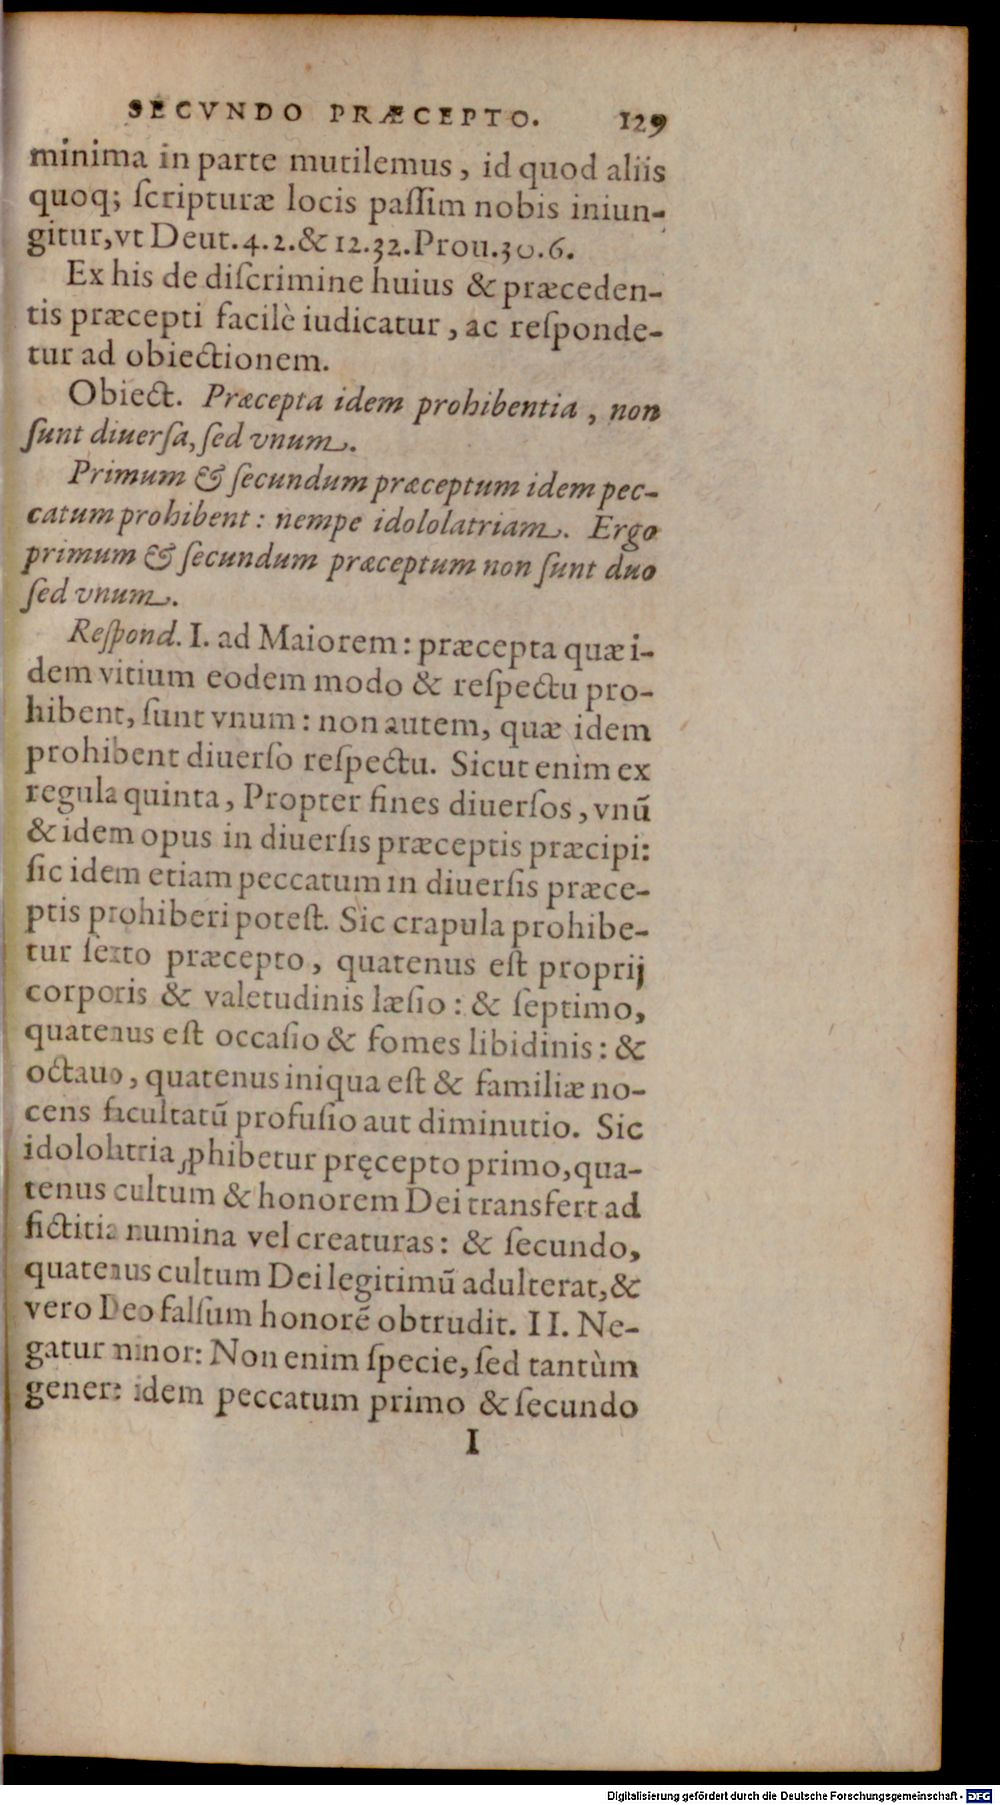 SECVNDO PRÆCEPTO. 129
minima in parte mutilemus, id quod aliis
quoq; ſcripturæ locis paſſim nobis iniun-
gitur, vt Deut. 4. 2. & 12. 32. Prou. 30. 6.
Ex his de diſcrimine huius & præceden-
tis præcepti facilè iudicatur, ac reſponde-
tur ad obiectionem.
Obiect. Præcepta idem prohibentia, non
ſunt diuerſa, ſed vnum.
Primum & ſecundum præceptum idem pec-
catum prohibent: nempe idololatriam. Ergo
primum & ſecundum præceptum non ſunt duo
ſed vnum.
Reſpond. I. ad Maiorem: præcepta quæ i-
dem vitium eodem modo & reſpectu pro-
hibent, ſunt vnum: non autem, quæ idem
prohibent diuerſo reſpectu. Sicut enim ex
regula quinta, Propter fines diuerſos, vnū
& idem opus in diuerſis præceptis præcipi:
ſic idem etiam peccatum in diuerſis præce-
ptis prohiberi poteſt. Sic crapula prohibe-
tur ſexto præcepto, quatenus eſt proprij
corporis & valetudinis læſio: & ſeptimo,
quatenus eſt occaſio & fomes libidinis: &
octauo, quatenus iniqua eſt & familiæ no-
cens facultatū profuſio aut diminutio. Sic
idololatria ꝓhibetur pręcepto primo, qua-
tenus cultum & honorem Dei transfert ad
fictitia numina vel creaturas: & ſecundo,
quatenus cultum Dei legitimū adulterat, &
vero Deo falſum honorē obtrudit. II. Ne-
gatur minor: Non enim ſpecie, ſed tantùm
genere idem peccatum primo & ſecundo
I
Digitalisierung gefördert durch die Deutsche Forschungsgemeinschaft - DFG